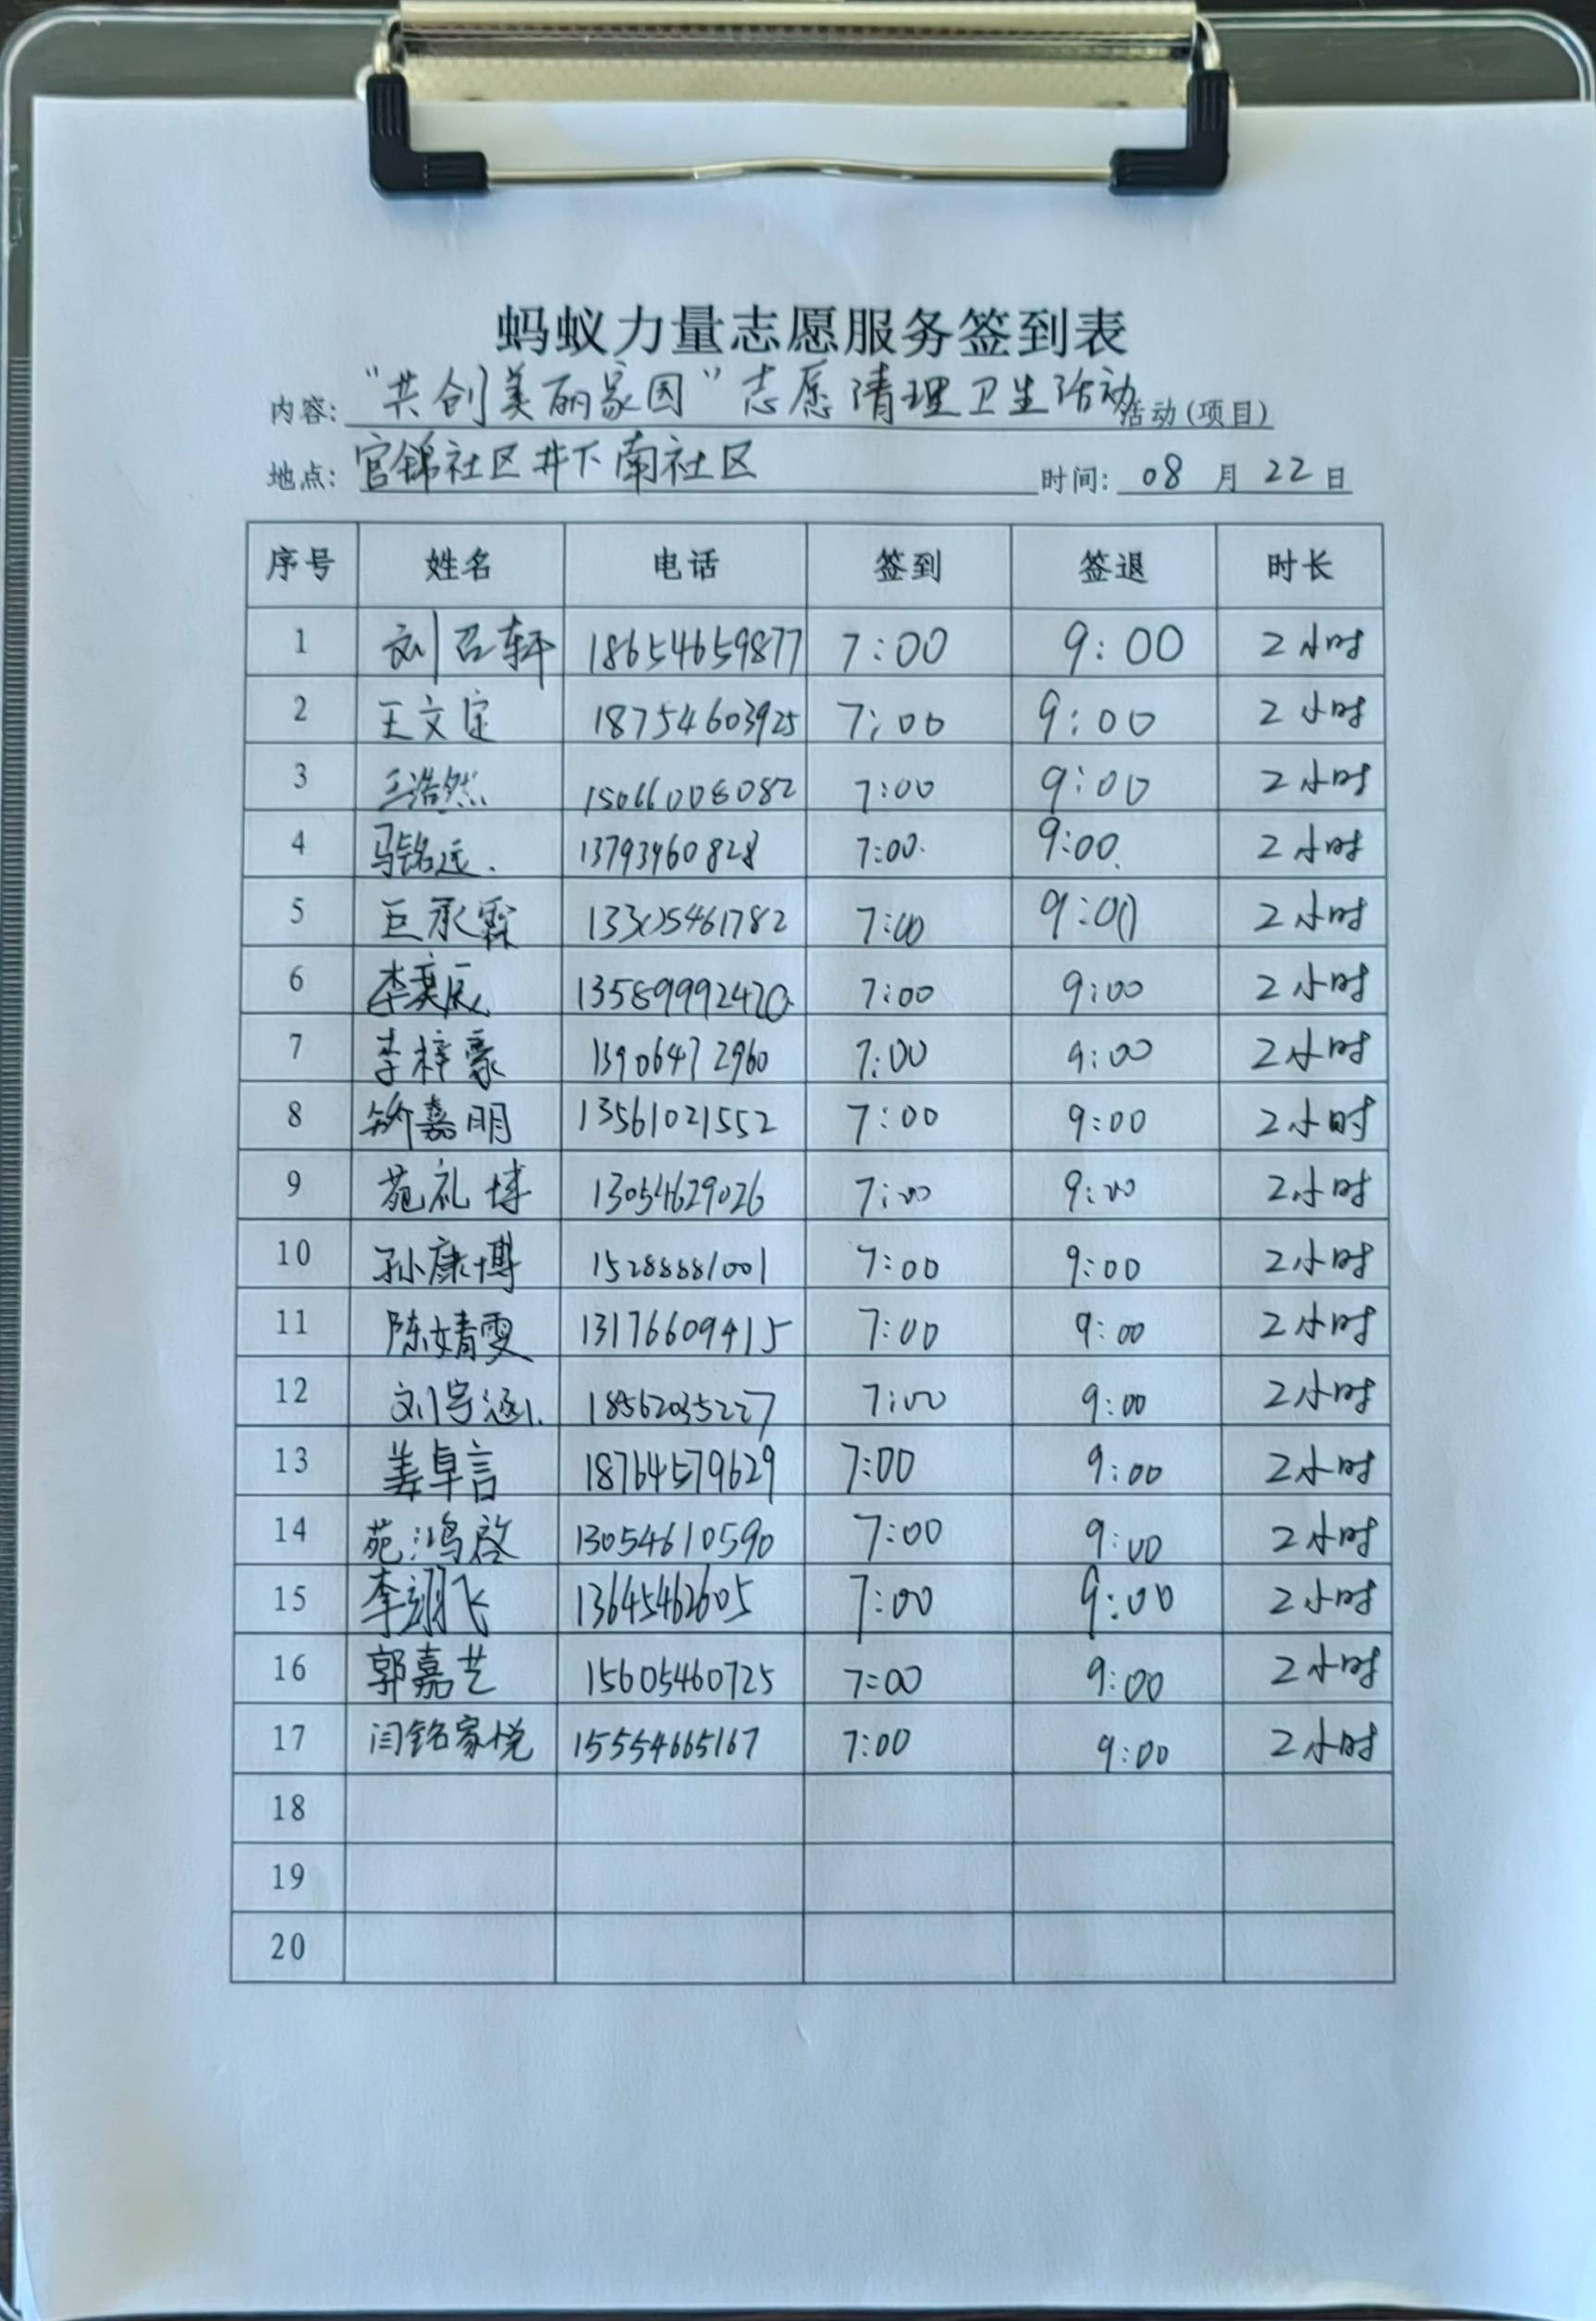 蚂蚁力量志愿服务签到表
内容: "共创美丽家园"志愿清理卫生活动活动(项目)
地点: 官锦社区井下南社区 时间: 08 月 22 日
序号 姓名 电话 签到 签退 时长
1 刘召轩 18654659877 7:00 9:00 2小时
2 王文定 18754603925 7:00 9:00 2小时
3 王浩然 15066008082 7:00 9:00 2小时
4 马铭远 13793960828 7:00 9:00 2小时
5 巨承霖 13305461782 7:00 9:00 2小时
6 李奕辰 13589992420 7:00 9:00 2小时
7 李梓豪 13906472960 7:00 9:00 2小时
8 嘉明 13561021552 7:00 9:00 2小时
9 苑礼博 13054629026 7:00 9:00 2小时
10 孙康博 15288881001 7:00 9:00 2小时
11 陈婧雯 13176609415 7:00 9:00 2小时
12 刘宇涵 18562035227 7:00 9:00 2小时
13 姜卓言 18764579629 7:00 9:00 2小时
14 苑鸿啓 13054610590 7:00 9:00 2小时
15 李翊飞 13645462605 7:00 9:00 2小时
16 郭嘉艺 15605460725 7:00 9:00 2小时
17 闫铭家悦 15554665167 7:00 9:00 2小时
18
19
20